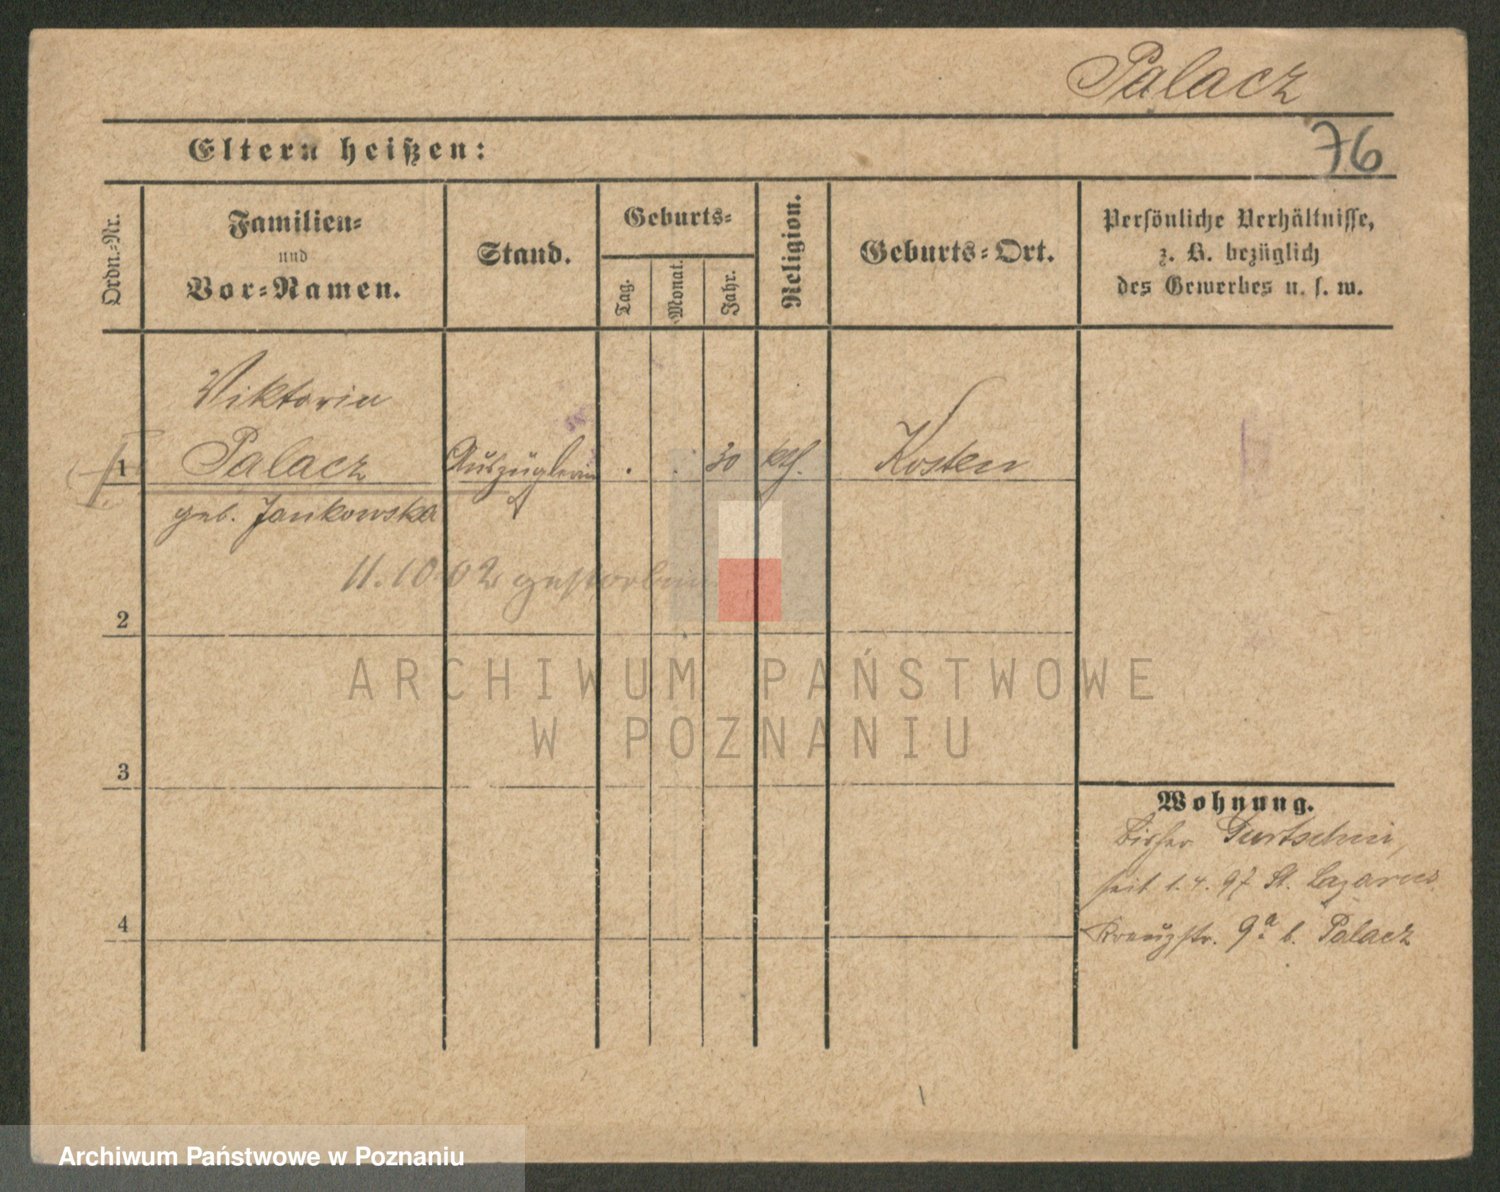 Palacz
Eltern heißen:
76
Ordn.-Nr.
Familien-
und
Vor-Namen.
Stand.
Geburts-
Tag.
Monat.
Jahr.
Religion.
Geburts-Ort.
Persönliche Verhältnisse,
z. B. bezüglich
des Gewerbes u. s. w.
Viktoria
1 Palacz Auszüglerin . . 30 kth. Kosten
geb. Jankowska
11.10.02 gestorben
2
ARCHIWUM PAŃSTWOWE
W POZNANIU
3
Wohnung.
bisher Gurtschin,
seit 1.4.97 St. Lazarus
Kreuzstr. 9a b. Palacz
4
Archiwum Państwowe w Poznaniu